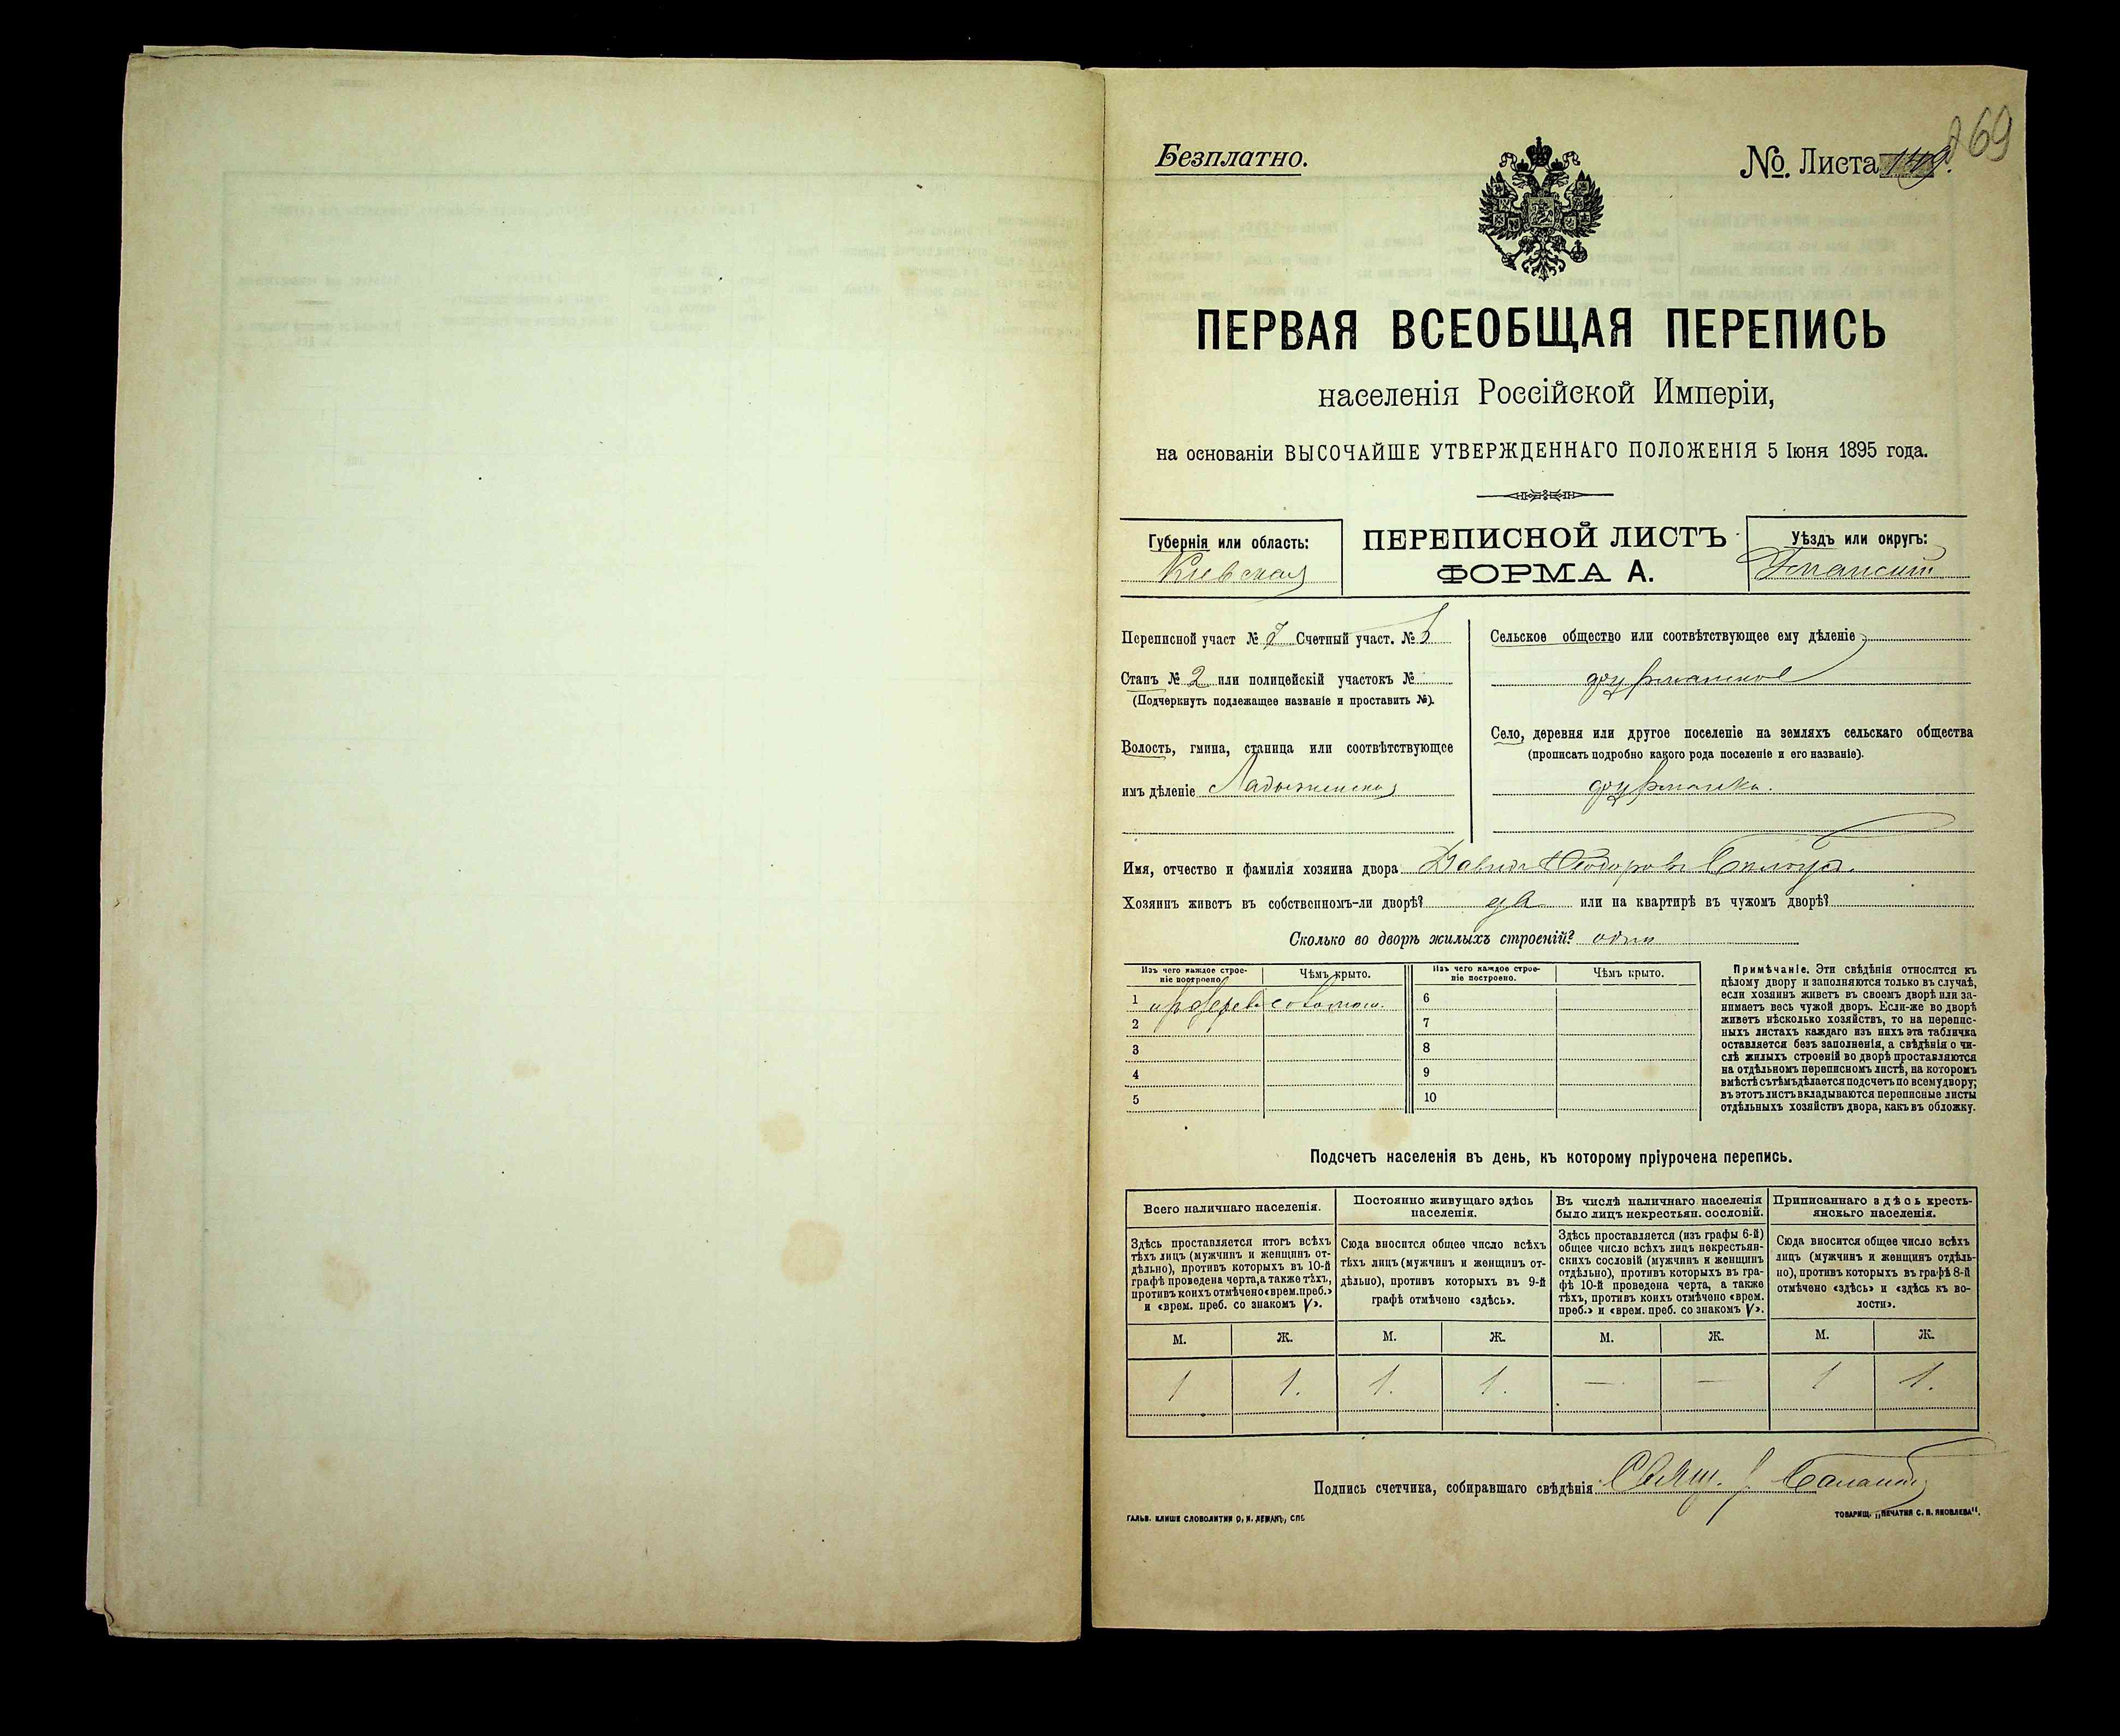 Безплатно.
№. Листа 149.
169
ПЕРВАЯ ВСЕОБЩАЯ ПЕРЕПИСЬ
населенія Россійской Имперіи,
на основаніи ВЫСОЧАЙШЕ УТВЕРЖДЕННАГО ПОЛОЖЕНІЯ 5 Іюня 1895 года.
Губернія или область:
Кіевская
ПЕРЕПИСНОЙ ЛИСТЪ
ФОРМА А.
Уѣздъ или округъ:
Уманскій
Переписной участ № 7 Счетный участ. №
Станъ № 2 или полицейскій участокъ №
(Подчеркнуть подлежащее названіе и проставить №).
Волость, гмина, станица или соотвѣтствующее
имъ дѣленіе Ладыжинская
Сельское общество или соотвѣтствующее ему дѣленіе
фурманское
Село, деревня или другое поселеніе на земляхъ сельскаго общества
(прописать подробно какого рода поселеніе и его названіе).
фурманка.
Имя, отчество и фамилія хозяина двора Давидъ Ѳеодоровъ
Хозяинъ живетъ въ собственномъ-ли дворѣ? да или на квартирѣ въ чужомъ дворѣ?
Сколько во дворѣ жилыхъ строеній? одно
Изъ чего каждое строе-
ніе построено.
Чѣмъ крыто.
Изъ чего каждое строе-
ніе построено.
Чѣмъ крыто.
1 изъ дерева соломою.
6
2
7
3
8
4
9
5
10
Примѣчаніе. Эти свѣдѣнія относятся къ
цѣлому двору и заполняются только въ случаѣ,
если хозяинъ живетъ въ своемъ дворѣ или за-
нимаетъ весь чужой дворъ. Если-же во дворѣ
живетъ нѣсколько хозяйствъ, то на перепис-
ныхъ листахъ каждаго изъ нихъ эта табличка
оставляется безъ заполненія, а свѣдѣнія о чи-
слѣ жилыхъ строеній во дворѣ проставляются
на отдѣльномъ переписномъ листѣ, на которомъ
вмѣстѣ съ тѣмъ дѣлается подсчетъ по всему двору;
въ этотъ листъ вкладываются переписные листы
отдѣльныхъ хозяйствъ двора, какъ въ обложку.
Подсчетъ населенія въ день, къ которому пріурочена перепись.
Всего наличнаго населенія.
Здѣсь проставляется итогъ всѣхъ
тѣхъ лицъ (мужчинъ и женщинъ от-
дѣльно), противъ которыхъ въ 10-й
графѣ проведена черта, а также тѣхъ,
противъ коихъ отмѣчено «врем. преб.»
и «врем. преб. со знакомъ V».
Постоянно живущаго здѣсь
населенія.
Сюда вносится общее число всѣхъ
тѣхъ лицъ (мужчинъ и женщинъ от-
дѣльно), противъ которыхъ въ 9-й
графѣ отмѣчено «здѣсь».
Въ числѣ наличнаго населенія
было лицъ некрестьян. сословій.
Здѣсь проставляется (изъ графы 6-й)
общее число всѣхъ лицъ некрестьян-
скихъ сословій (мужчинъ и женщинъ
отдѣльно), противъ которыхъ въ гра-
фѣ 10-й проведена черта, а также
тѣхъ, противъ коихъ отмѣчено «врем.
преб.» и «врем. преб. со знакомъ V».
Приписаннаго здѣсь кресть-
янскаго населенія.
Сюда вносится общее число всѣхъ
лицъ (мужчинъ и женщинъ отдѣль-
но), противъ которыхъ въ графѣ 8-й
отмѣчено «здѣсь» и «здѣсь къ во-
лости».
М. Ж. М. Ж. М. Ж. М. Ж.
1 1. 1. 1. — — 1 1.
Подпись счетчика, собиравшаго свѣдѣнія: Свящ.
ГАЛЬВ. КЛИШЕ СЛОВОЛИТНИ О. И. ЛЕМАНЪ, СПБ.
ТОВАРИЩ. „ПЕЧАТНЯ С. П. ЯКОВЛЕВА".